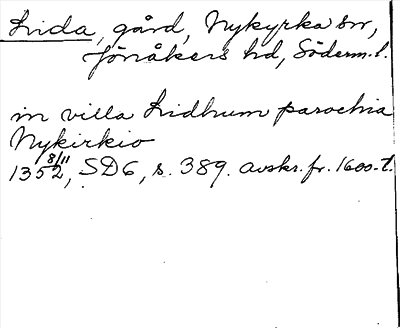 Lida, gård, Nykyrka sn,
Jönåkers hd, Söderm.l.
in villa Lidhum parochia
Nykirkio
1352 8/11, SD6, s. 389. avskr. fr. 1600-t.